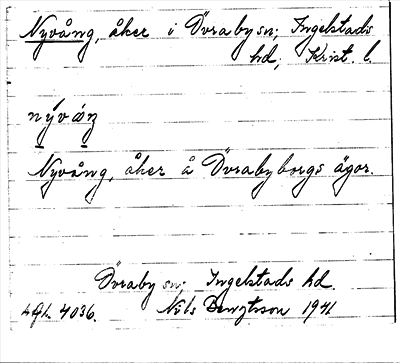 Nyvång, åker i Övraby sn; Ingelstads
hd, Krist. l.
nývǻŋ
Nyvång, åker å Övrabyborgs ägor.
Övraby sn; Ingelstads hd.
Nils Bengtsson 1941
4036.